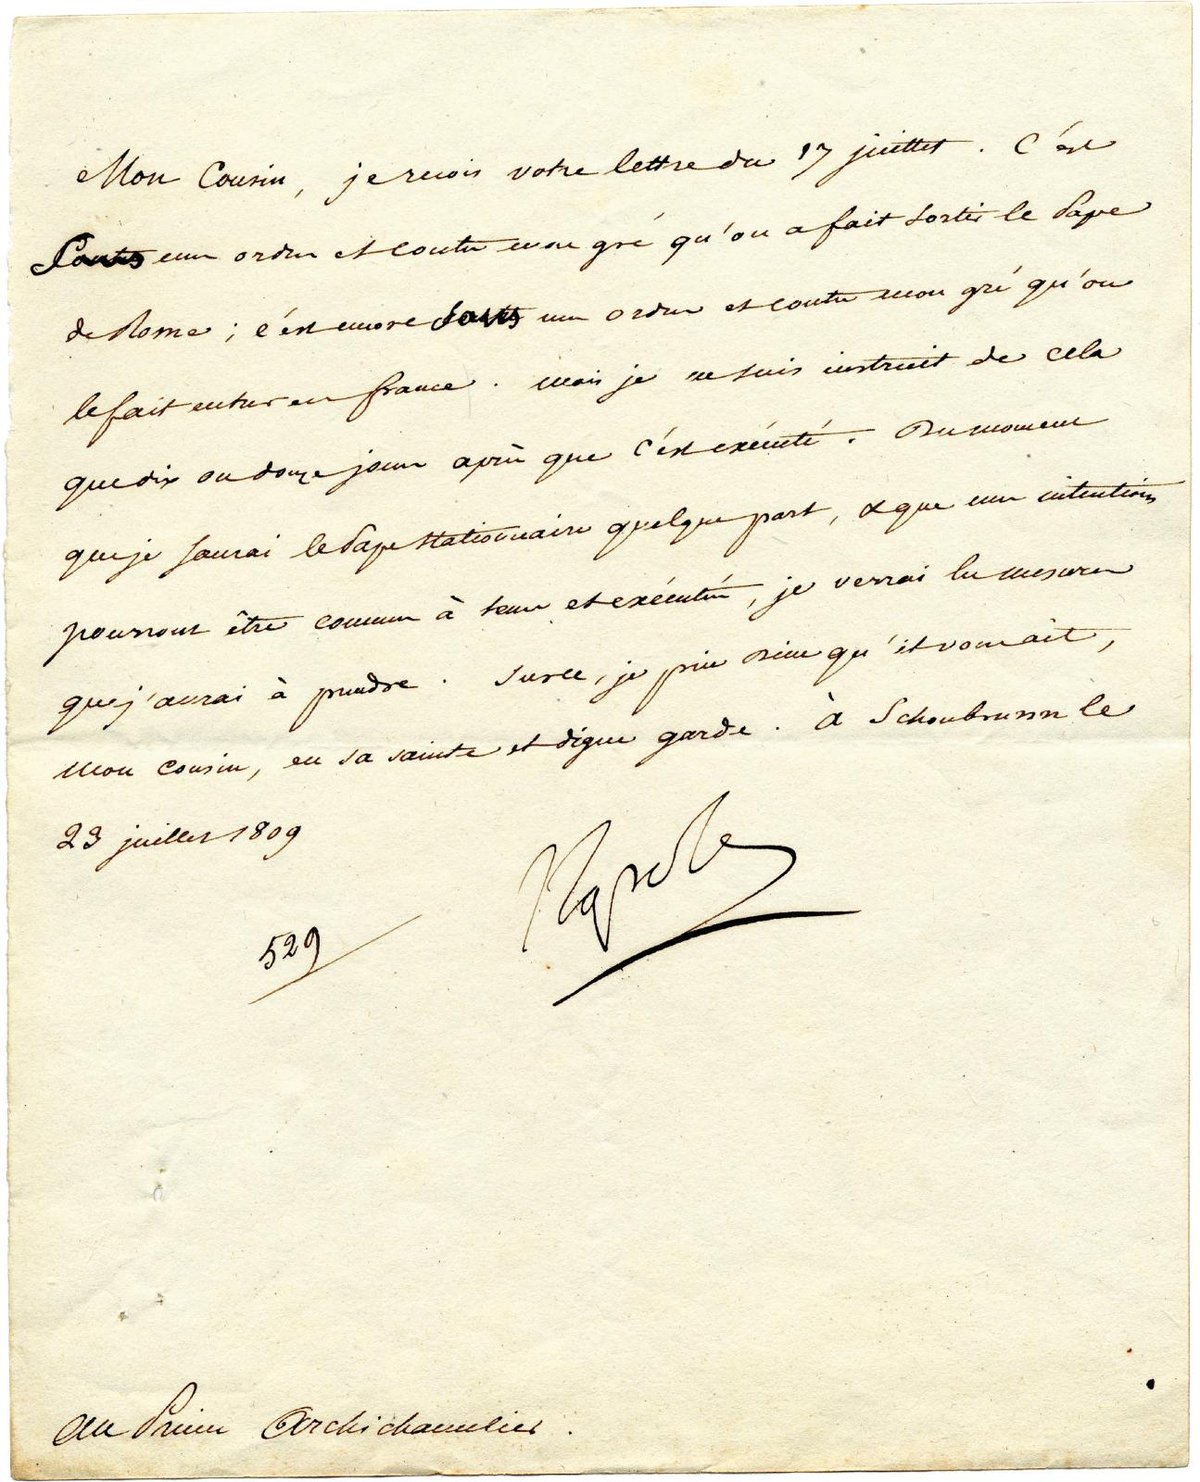 Mon Cousin, je reçois votre lettre du 17 juillet. C'est
sans mes ordres et contre mon gré qu'on a fait sortir le Pape
de Rome; c'est encore sans mes ordres et contre mon gré qu'on
le fait entrer en france. mais je ne suis instruit de cela
que dix ou douze jours après que c'est exécuté. Du moment
que je saurai le Pape stationnaire quelque part, & que mes intentions
pourront être connues à tems et exécutées, je verrai les mesures
que j'aurai à prendre. Sur ce, je prie Dieu qu'il vous ait,
mon cousin, en sa sainte et digne garde. à Schonbrunn le
23 juillet 1809
Napole
529
au Prince Archichancelier.